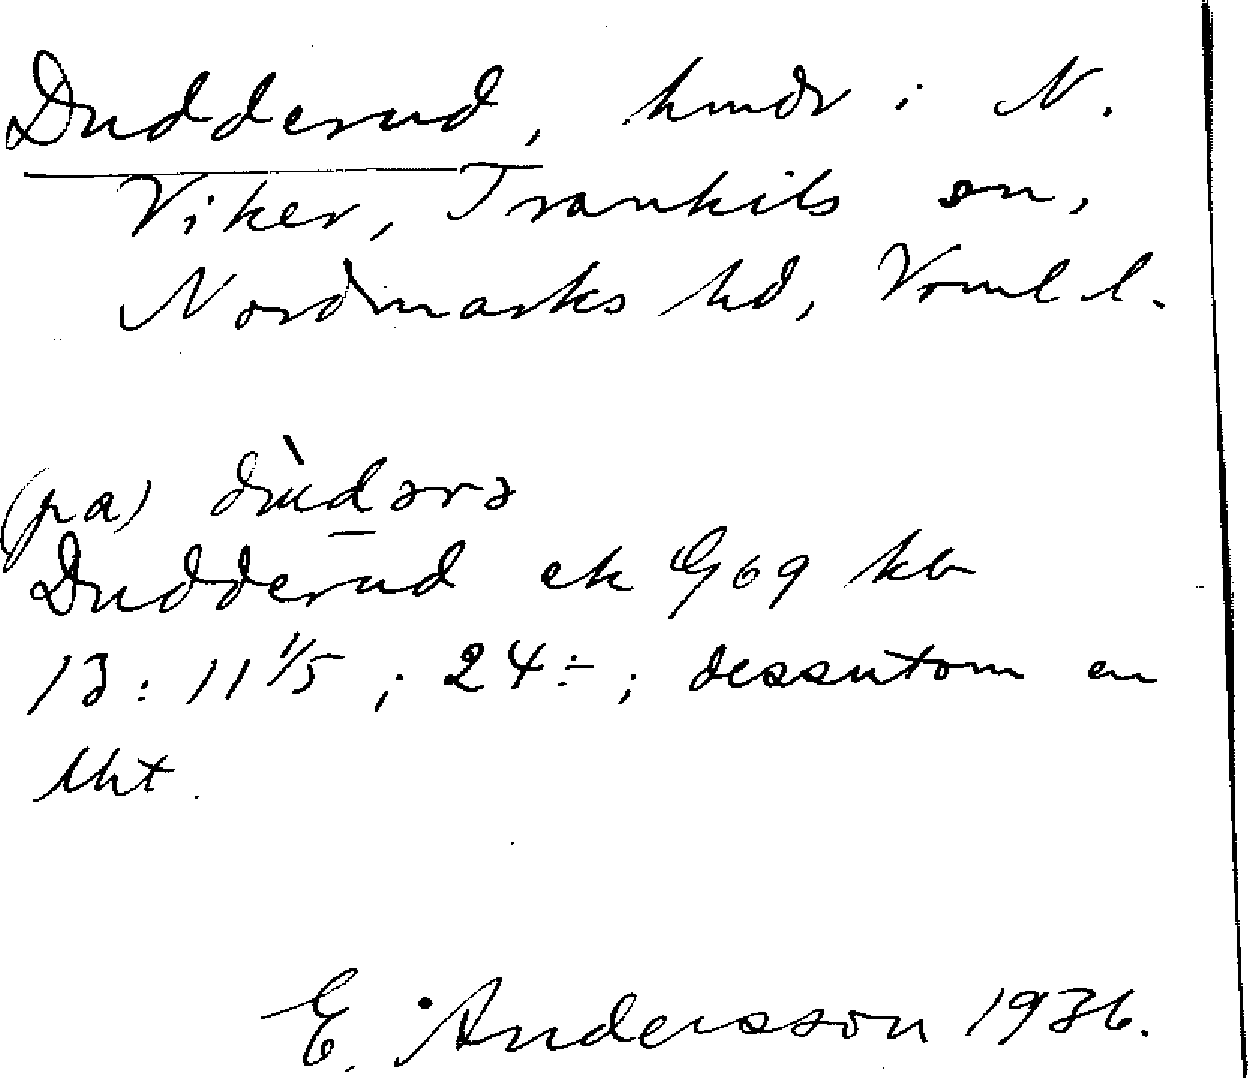 Dudderud, hmdr i N.
Viker, Trankils sn,
Nordmarks hd, Vrml l.
(pa) dùdərə
Dudderud ek G69 kb
13: 11 1/5 ; 24÷ ; dessutom en
lht.
E. Andersson 1936.